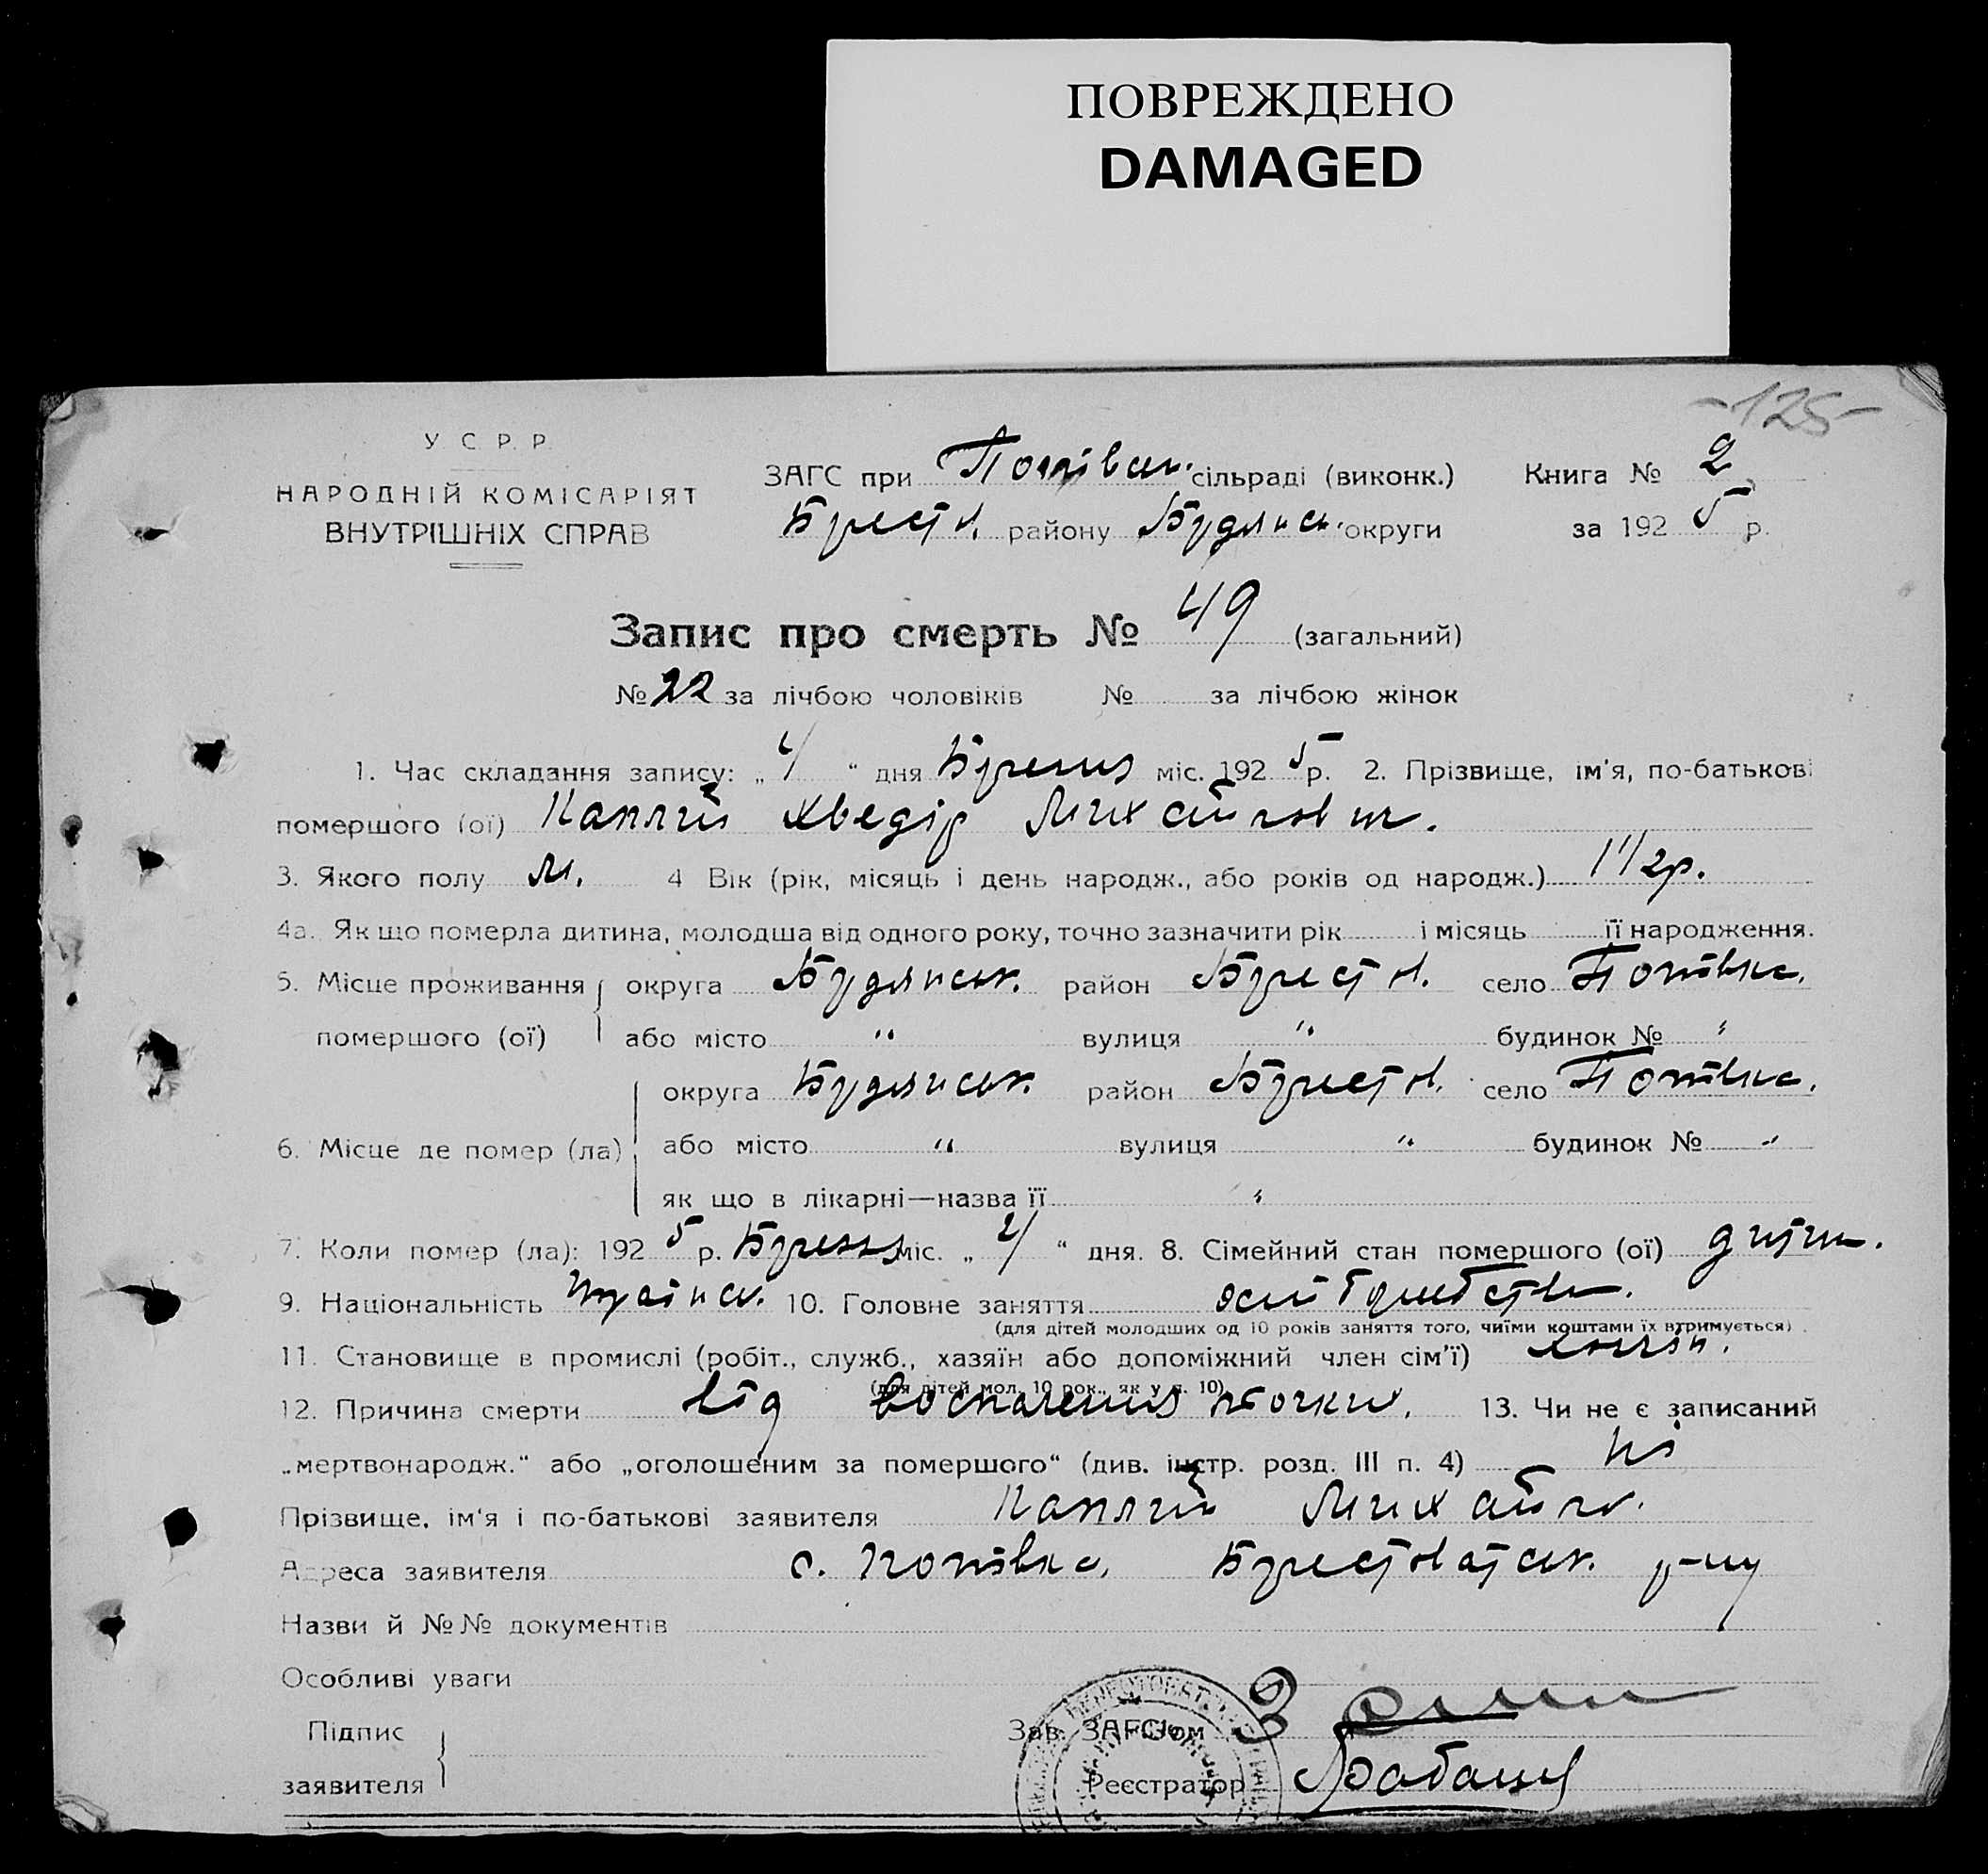 ПОВРЕЖДЕНО
DAMAGED
-125-
У С. Р. Р.
НАРОДНІЙ КОМІСАРІЯТ
ВНУТРІШНІХ СПРАВ
ЗАГС при Попівськ. сільраді (виконк.) Книга № 2
району округи за 1925 р.
Запис про смерть № 49 (загальний)
№ 22 за лічбою чоловіків № за лічбою жінок
1. Час складання запису: „4“ дня міс. 1925 р. 2. Прізвище, ім'я, по-батькові
помершого (ої) Каплій Хведір Михайлович.
3. Якого полу м. 4 Вік (рік, місяць і день народж., або років од народж.) 1 1/2 р.
4а. Як що померла дитина, молодша від одного року, точно зазначити рік і місяць її народження.
5. Місце проживання округа район село Попівка.
помершого (ої) або місто " вулиця " будинок № "
округа район село Попівка.
6. Місце де помер (ла) або місто " вулиця " будинок № "
як що в лікарні—назва її "
7. Коли помер (ла): 1925 р. міс. „ “ дня. 8. Сімейний стан помершого (ої) дитин.
9. Національність 10. Головне заняття
(для дітей молодших од 10 років заняття того, чиїми коштами їх втримується)
11. Становище в промислі (робіт., служб., хазяїн або допоміжний член сім'ї) хазяїн.
(для дітей мол. 10 рок., як у п. 10)
12. Причина смерти від воспаления 13. Чи не є записаний
„мертвонародж.“ або „оголошеним за помершого“ (див. інстр. розд. III п. 4) ні
Прізвище, ім'я і по-батькові заявителя Каплій Михайло.
Адреса заявителя с. Попівка, р-ну
Назви й №№ документів
Особливі уваги
Підпис
заявителя
Зав. ЗАГС'ом
Реєстратор